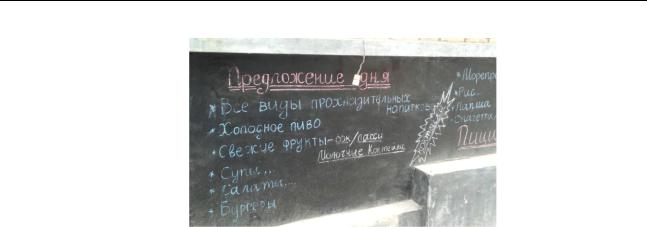 Предложение дня
* Все виды прохладительных
напитков
* Холодное пиво
* Свежие фрукты-сок/ласси
Молочные коктейли
* Супы...
* Салаты...
* Бургеры
* Морепр
* Рис.
* Лапша
* Спагетти
Пицц